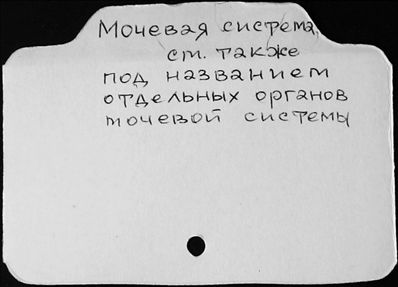 Мочевая система,
см. также
под названием
отдельных органов
мочевой системы